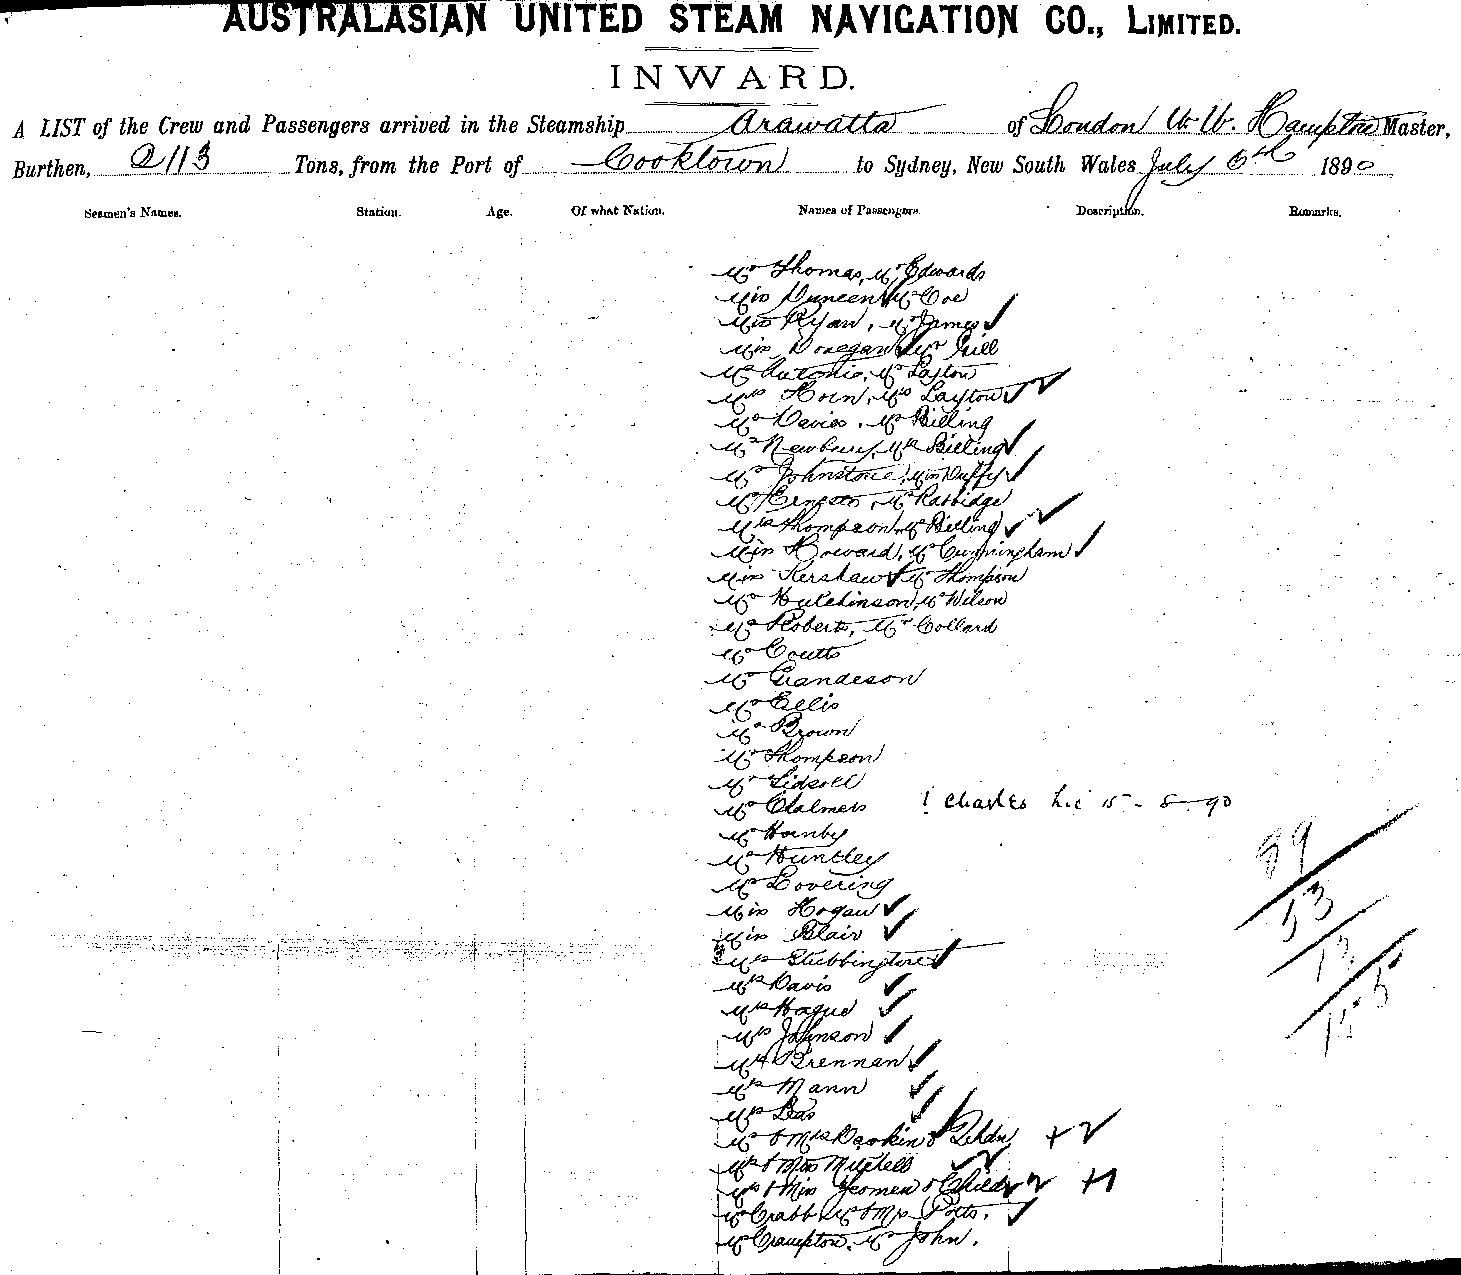 AUSTRALASIAN UNITED STEAM NAVIGATION CO., LIMITED.
INWARD.
A LIST of the Crew and Passengers arrived in the Steamship Arawatta of London W. W. Hampton Master,
Burthen, 2113 Tons, from the Port of Cooktown to Sydney, New South Wales July 6th 1890
Seamen's Names. Station. Age. Of what Nation. Names of Passengers. Description. Remarks.
Mr Thomas, Mr Edwards
Miss Duncan Mr Coe
Miss Ryan, Mr James
Miss Donegan Mr Gill
Mr Antonio, Mr Layton
Mrs Horn, Mrs Layton
Mr Davies, Mr Billing
Mr Newbury, Mrs Billing
Mr Johnstone, Miss Duffy
Mr Mr Rabbidge
Mrs Thompson, Mr Billing
Miss Howard, Mr Cunningham
Miss Kershaw Mr Thompson
Mr Hutchinson, Mr Wilson
Mr Roberts, Mr Collard
Mr Coutts
Mr Grandeson
Mr Ellis
Mr Brown
Mr Thompson
Mr Lidsoll
Mr Chalmers ! Charles 15-8-90
Mr Hornby
Mr Huntley
Mr Lovering
Miss Hogan
Miss Blair
Mrs Stubbington
Mrs Davis
Mrs Hague
Mrs Johnson
Mrs Brennan
Mrs Mann
Mrs
Mr & Mrs Daykin & 2 chdn + 2
Mrs & Miss Mitchell
Mrs & Miss Yeomen & Child + 1
Mr Crabb Mr & Mrs Potts.
Mr Crampton, Mr John.
89
53
13
155